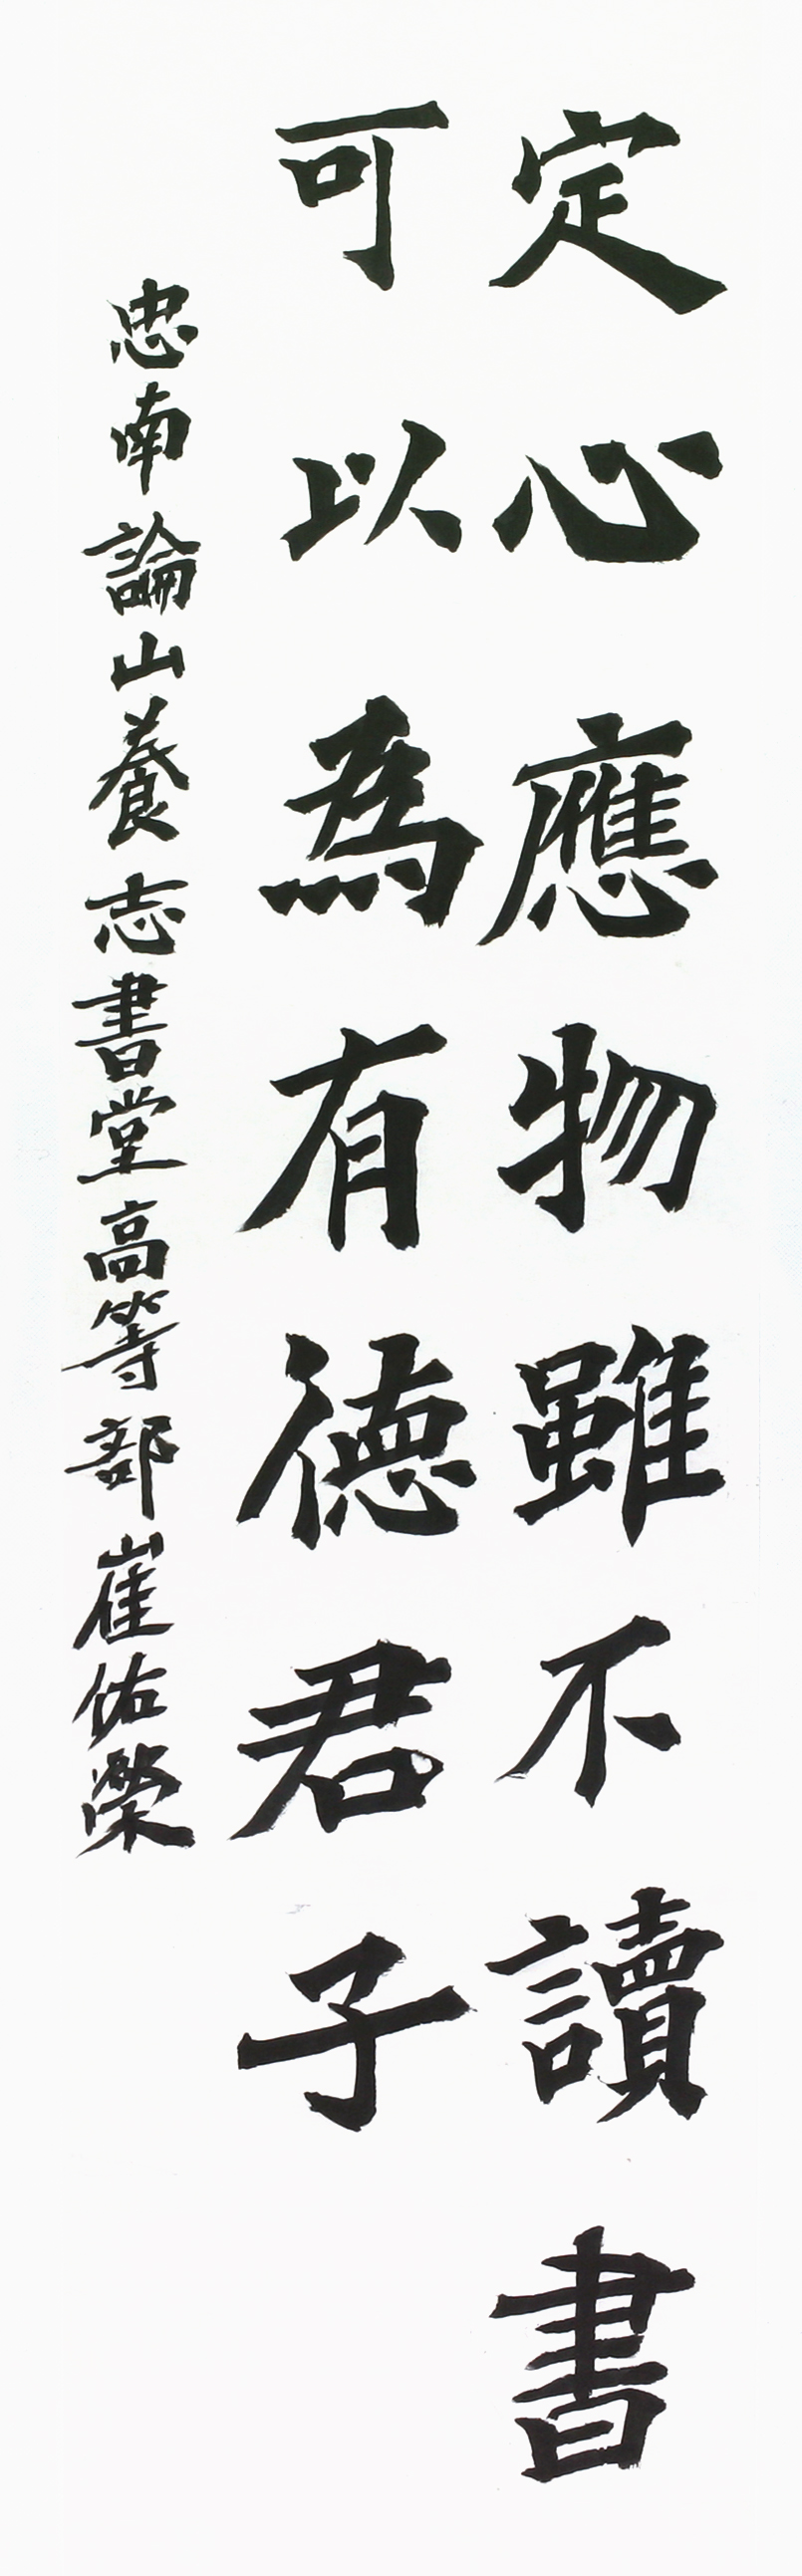 定心應物雖不讀書
可以為有德君子
忠南論山養志書堂高等部崔佑榮